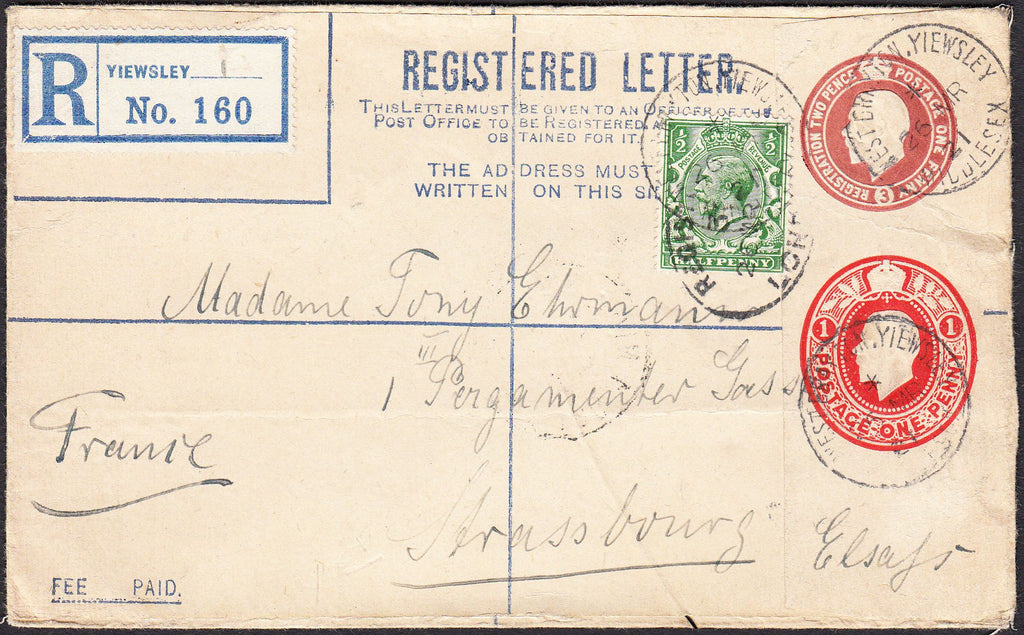 R YIEWSLEY
No. 160
REGISTERED LETTER.
THIS LETTER MUST BE GIVEN TO AN OFFICER OF THE
POST OFFICE TO BE REGISTERED, A
OBTAINED FOR IT.
THE ADDRESS MUST
WRITTEN ON THIS SI
REGISTRATION TWO PENCE POSTAGE ONE PENNY
3
YIEWSLEY
MIDDLESEX
26
½ ½
POSTAGE REVENUE
HALFPENNY
1 1
POSTAGE ONE PENNY
Madame Tony Ehrmann
III
1 Pergamenter Gass
France
Strassbourg Elsaſs
FEE PAID.